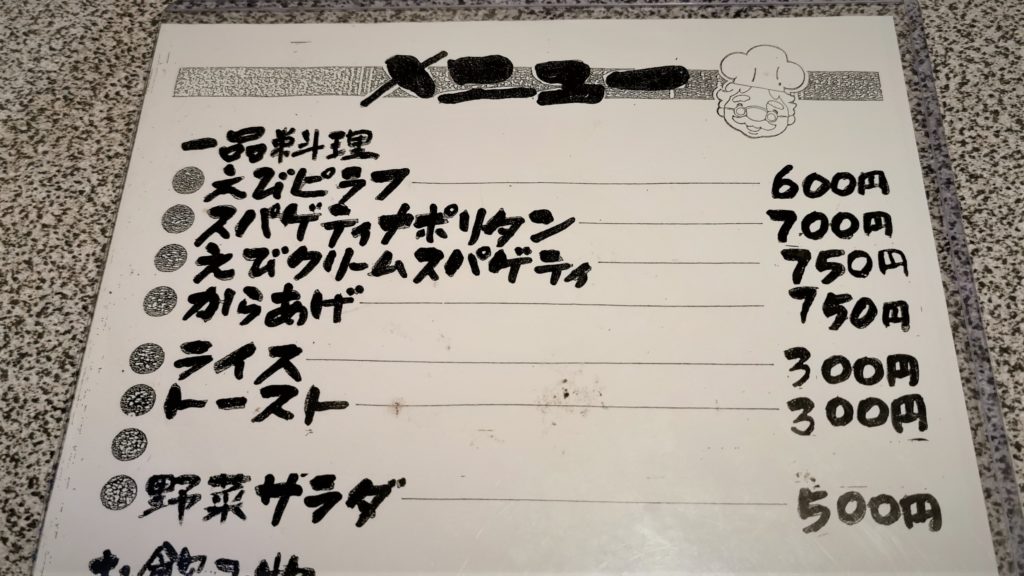 メニュー
一品料理
えびピラフ 600円
スパゲティナポリタン 700円
えびクリームスパゲティ 750円
からあげ 750円
ライス 300円
トースト 300円
野菜サラダ 500円
お飲み物